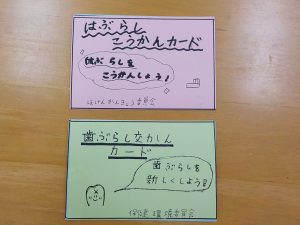 はぶらし
こうかんカード
はぶらしを
こうかんしよう!
ほけんかんきょう委員会
歯ぶらし交かん
カード
歯ぶらしを
新しくしよう!!
保健環境委員会